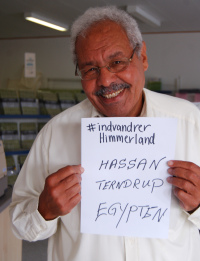 #indvandrer
Himmerland
HASSAN
TERNDRUP
EGYPTEN